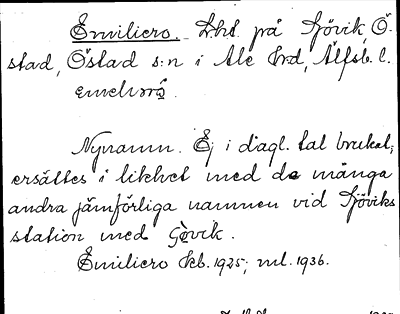 Emiliero. Lht. på Sjövik, Ö-
stad, Östad s:n i Ale hrd, Älfsb. l.
Nynamn. Ej i dagl. tal brukat;
ersättes i likhet med de många
andra jämförliga namnen vid Sjöviks
station med
Emiliero Jkb. 1925; ml. 1936.